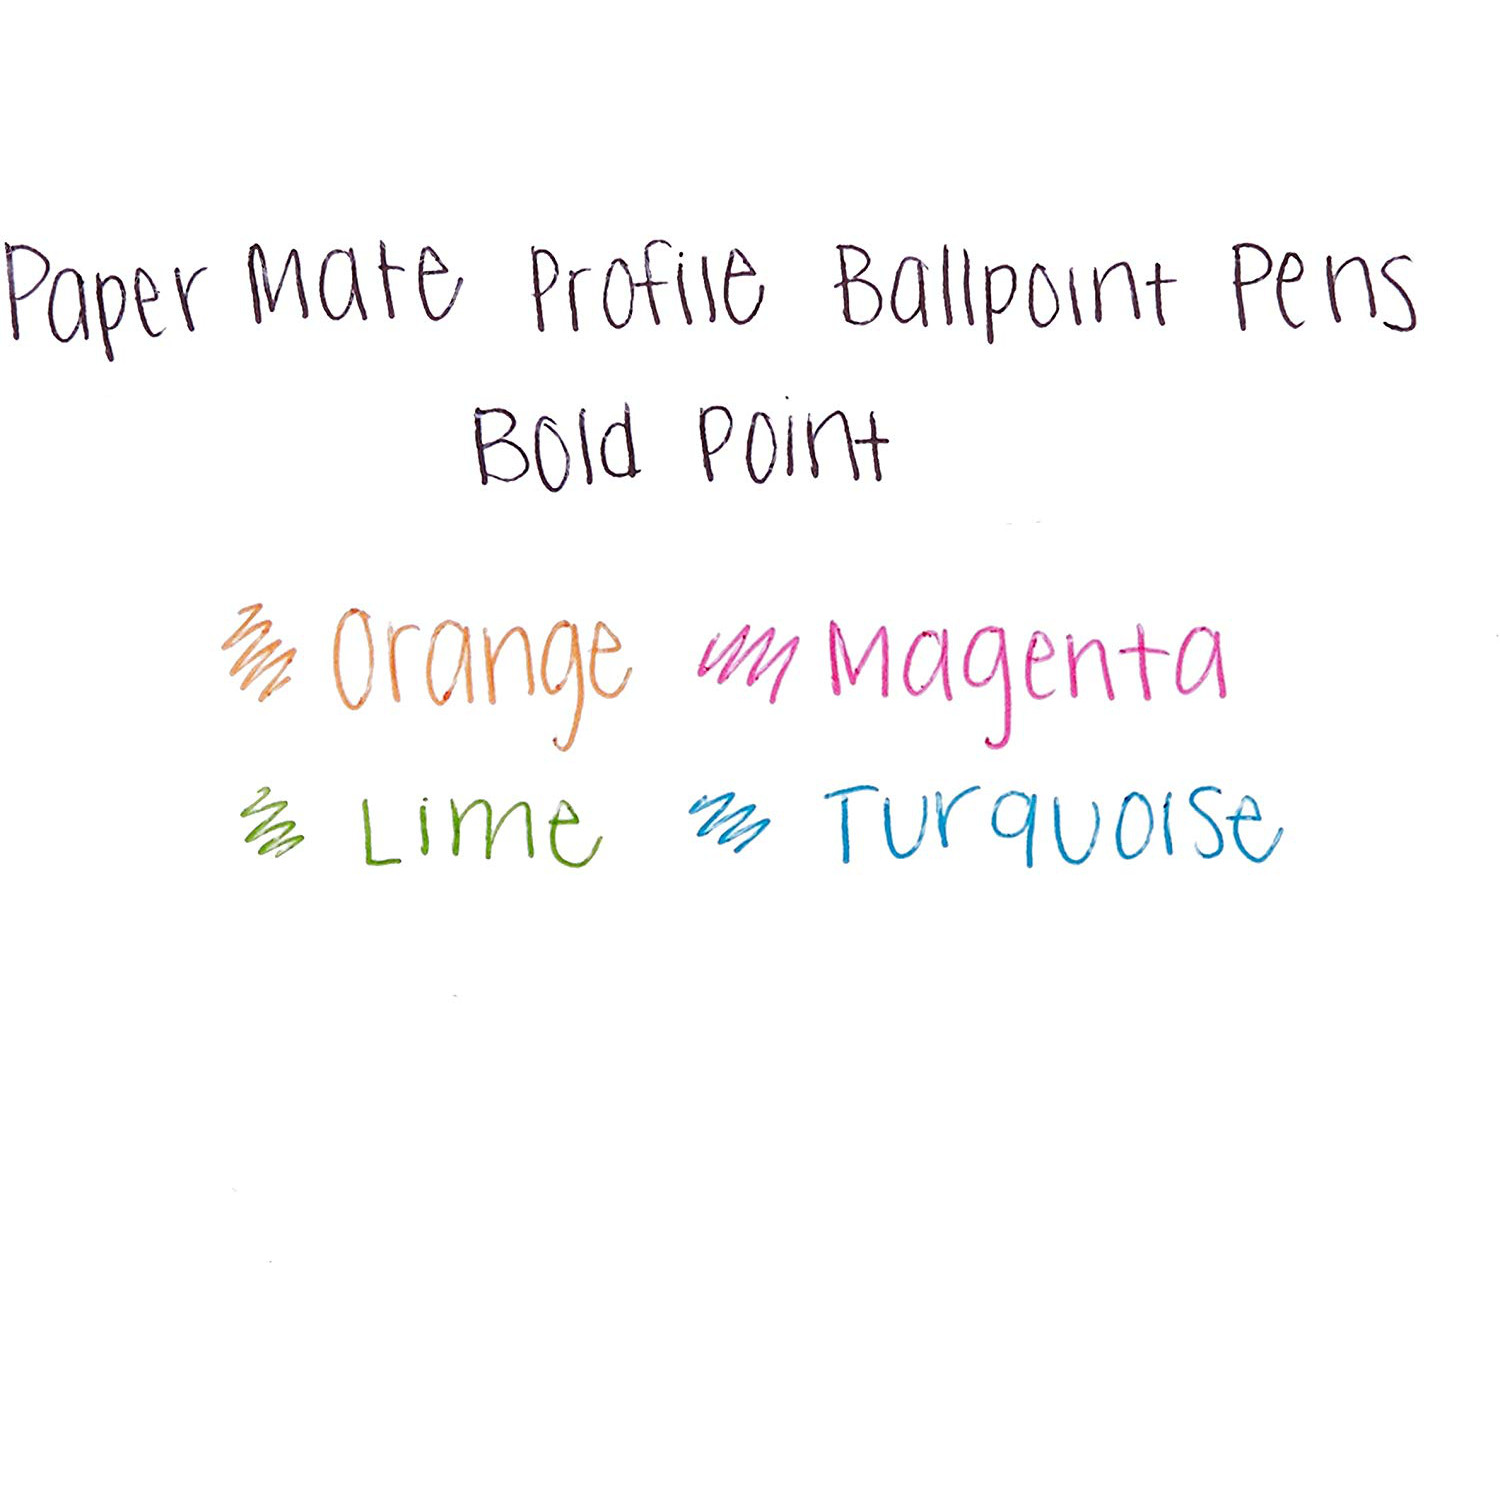 Paper Mate Profile Ballpoint Pens
Bold Point
Orange Magenta
Lime Turquoise